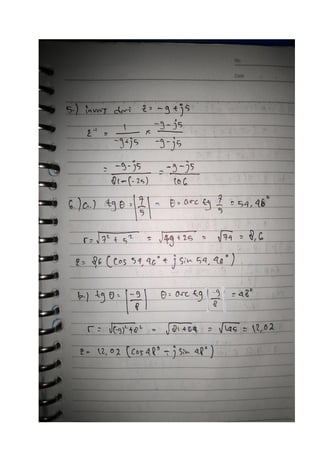 No.
Date
5.) invers dari z = -9 + j5
z⁻¹ = 1/(-9+j5) × (-9-j5)/(-9-j5)
= (-9-j5)/(81-(-25)) = (-9-j5)/106
6.) a.) tg θ = |7/5| - θ = arc tg 7/5 = 54,46°
r = √7² + 5² = √49+25 = √74 = 8,6
z = 8,6 (cos 54,46° + j sin 54,46°)
b.) tg θ = |-9/8| θ = arc tg |-9/8| = 48°
r = √(-9)²+8² = √81+64 = √145 = 12,02
z = 12,02 (cos 48° - j sin 48°)